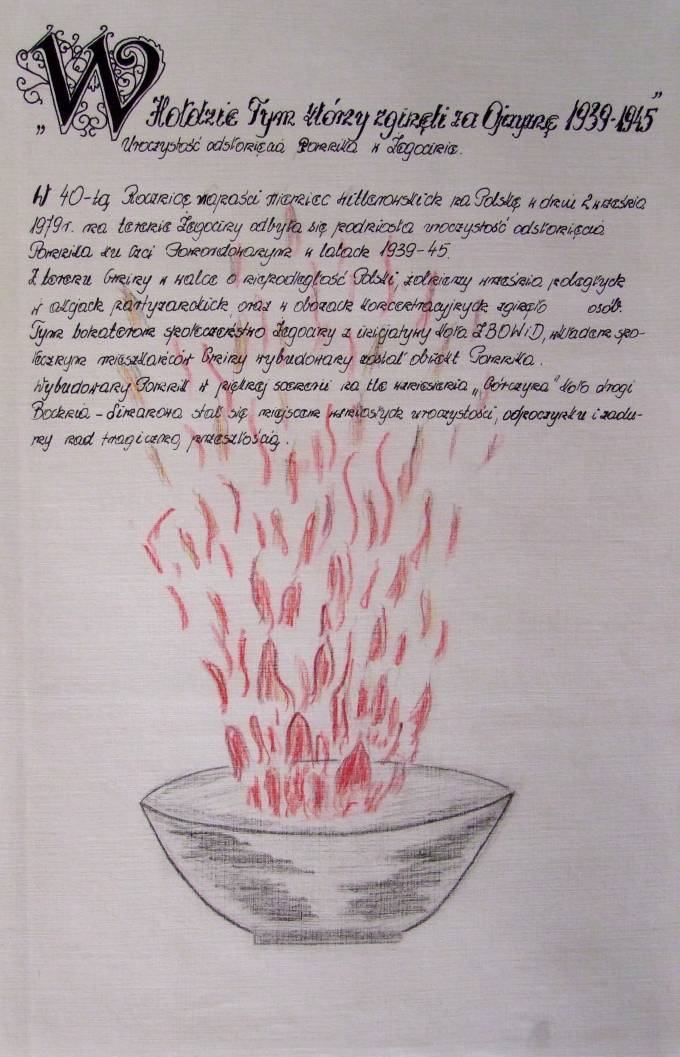 „W Hołdzie Tym którzy zginęli za Ojczyznę 1939-1945”
Uroczystość odsłonięcia Pomnika w Żegocinie.
W 40-tą Rocznicę napaści niemiec hitlerowskich na Polskę w dniu 2 września
1979r. na terenie Żegociny odbyła się podniosła uroczystość odsłonięcia
Pomnika ku Czci Pomordowanym w latach 1939-45.
Z terenu Gminy w walce o niepodległość Polski, żołnierzy września poległych
w akcjach partyzanckich, oraz w obozach koncentracyjnych zginęło osób.
Tym bohaterom społeczeństwo Żegociny z inicjatywy Koła ZBOWiD, wkładem spo-
łecznym mieszkańców Gminy wybudowany został obiekt Pomnika.
Wybudowany Pomnik w pięknej scenerii na tle wzniesienia „Górczyna” koło drogi
Bochnia - Limanowa stał się miejscem wzniosłych uroczystości, odpoczynku i zadu-
my nad tragiczną przeszłością.